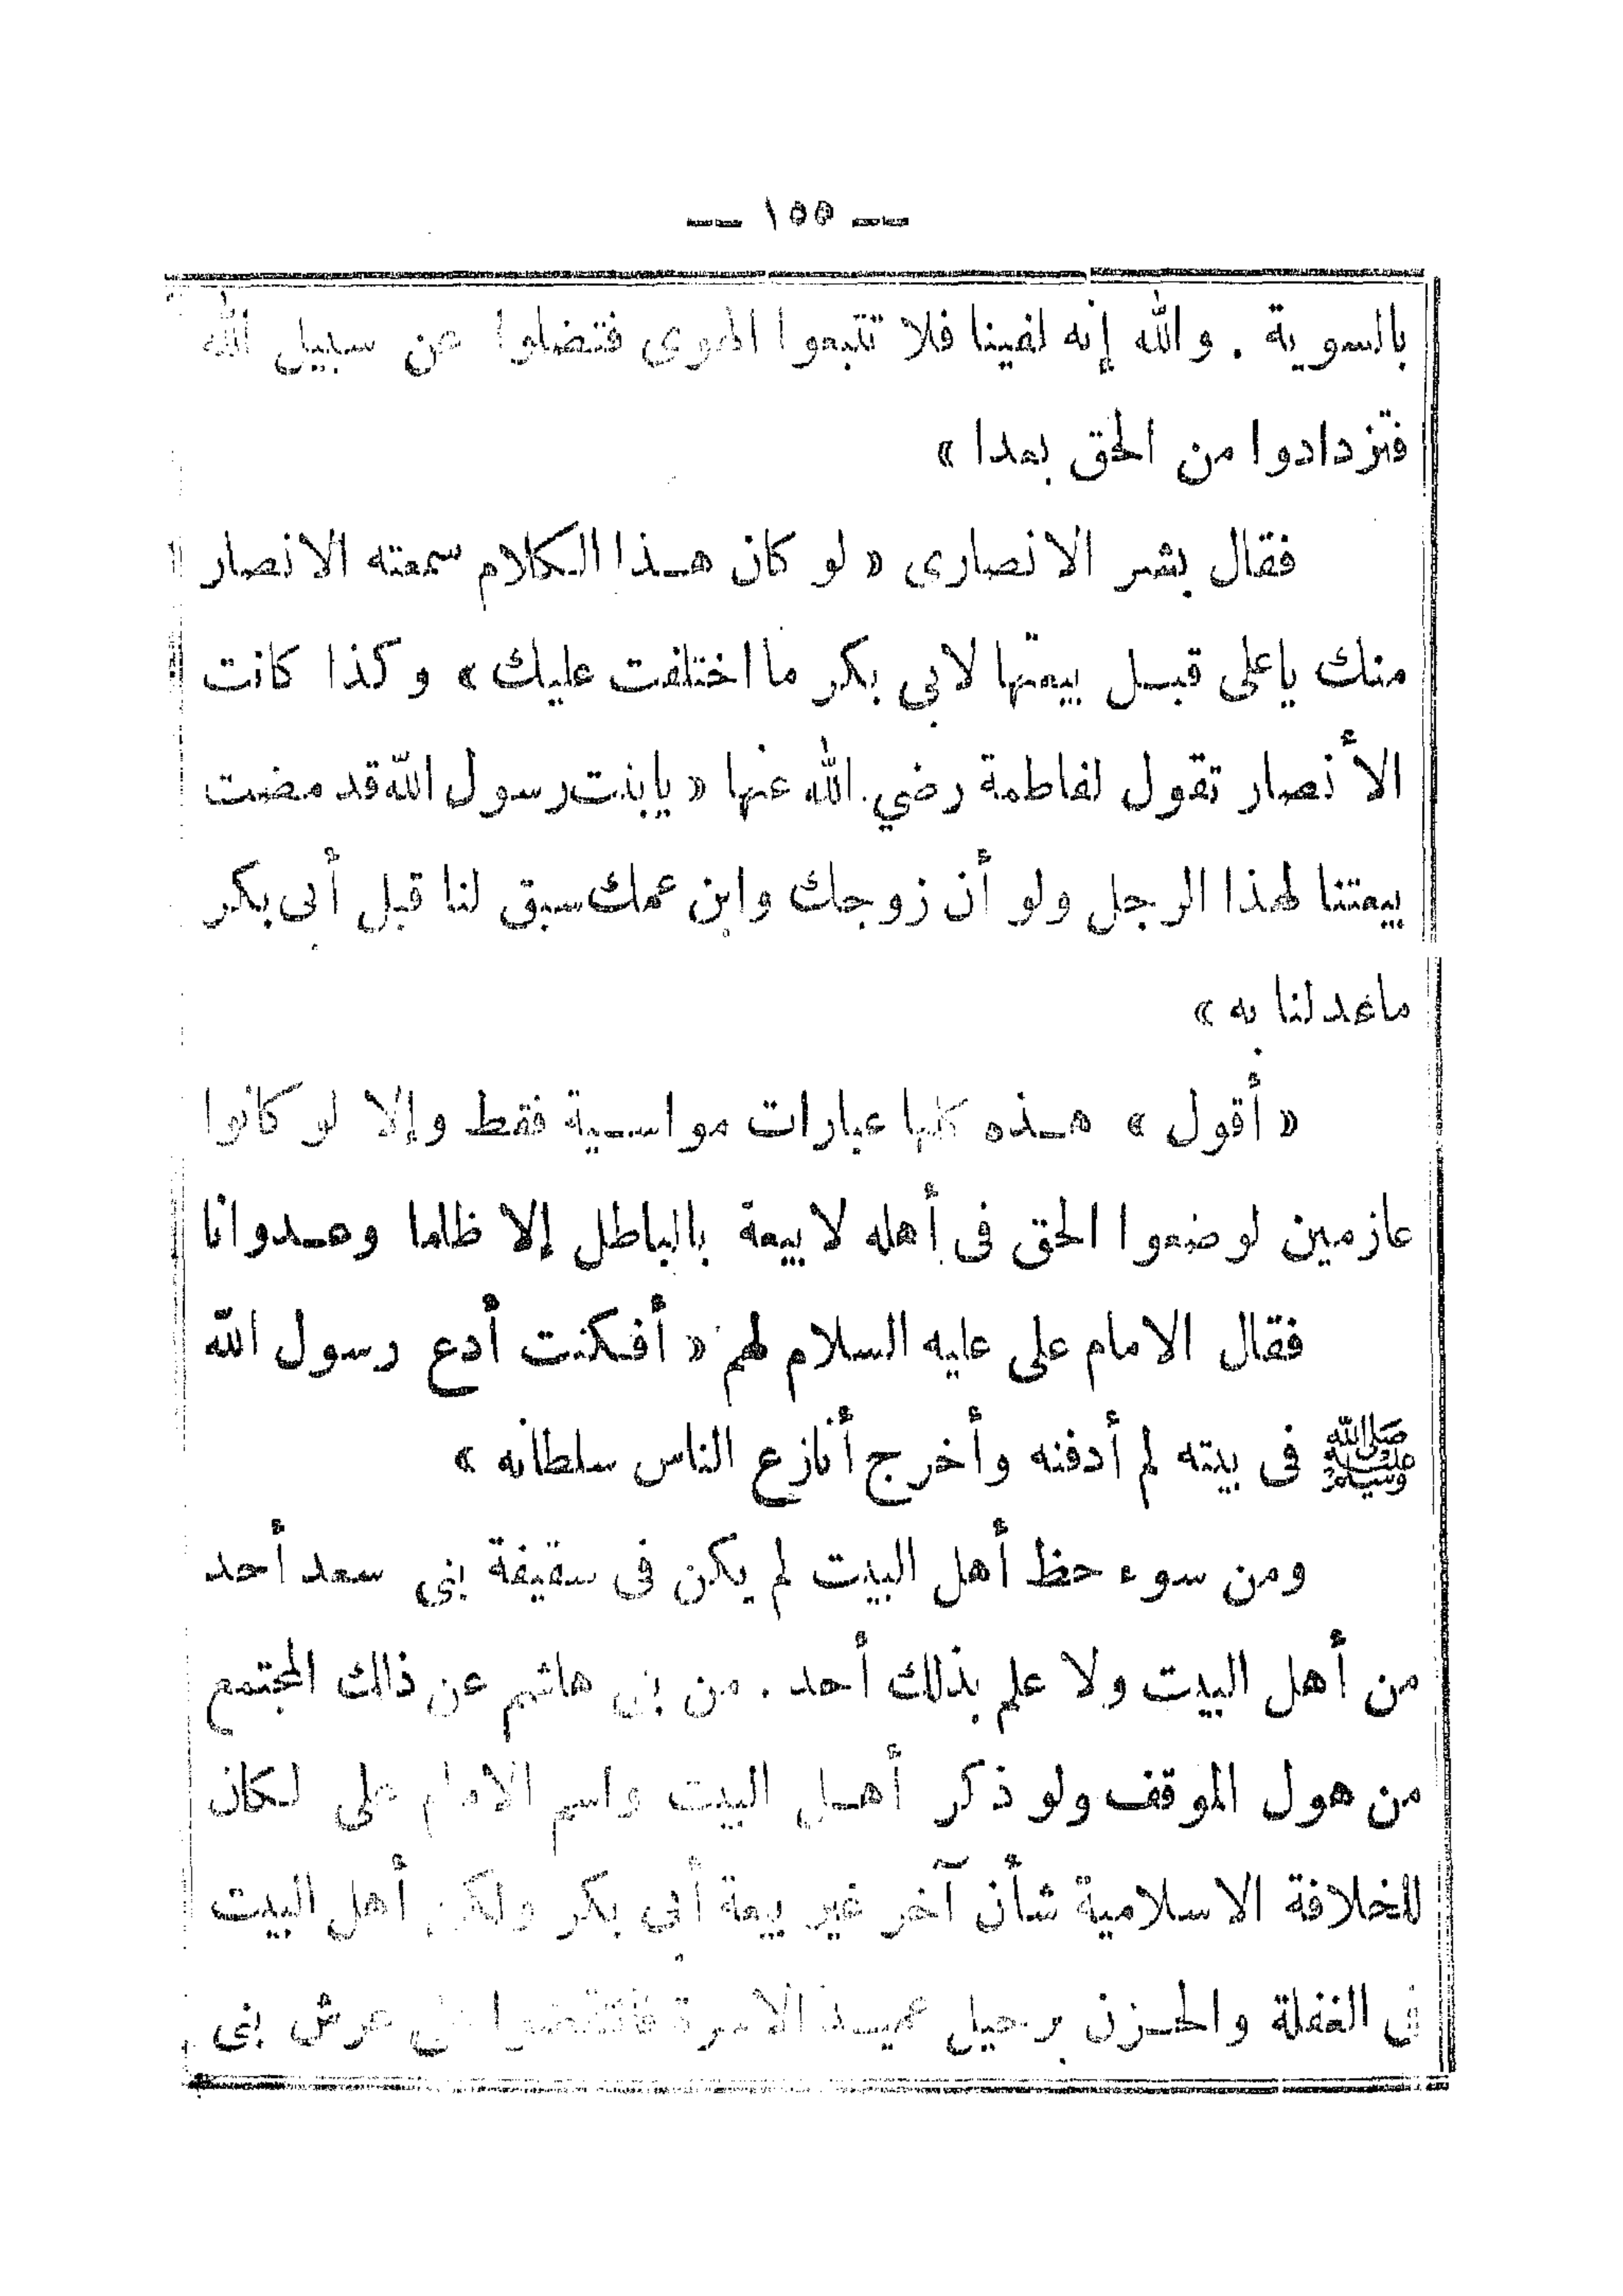 — ١٥٥ —
بالسوية . والله إنه لفينا فلا تتبعوا الهوى فتضلوا عن سبيل الله
فتزدادوا من الحق بعدا »
فقال بشر الانصارى « لو كان هـذا الـكلام سمعته الانصار
منك ياعلى قبـل بيعتها لابي بكر ما اختلفت عليك » وكذا كانت
الأنصار تقول لفاطمة رضي الله عنها « يابنت رسول الله قد مضت
بيعتنا لهذا الرجل ولو أن زوجك وابن عمك سبق لنا قبل أبى بكر
ماعدلنا به »
« أقول » هـذه كلها عبارات مواسـية فقط وإلا لو كانوا
عازمين لوضعوا الحق فى أهله لابيعة بالباطل إلا ظلما وعـدوانا
فقال الامام على عليه السلام لهم « أفـكنت أدع رسول الله
ﷺ فى بيته لم أدفنه وأخرج أنازع الناس سلطانه »
ومن سوء حظ أهل البيت لم يكن فى سقيفة بنى سعد أحد
من أهل البيت ولا علم بذلك أحد . من بنى هاشم عن ذالك المجتمع
من هول الموقف ولو ذكر أهـل البيت واسم الامام على لـكان
للخلافة الاسلامية شأن آخر غير بيعة أبي بكر ولكن أهل البيت
فى الغفلة والحـزن برحيل عميـد الاسرة على عرش بنى